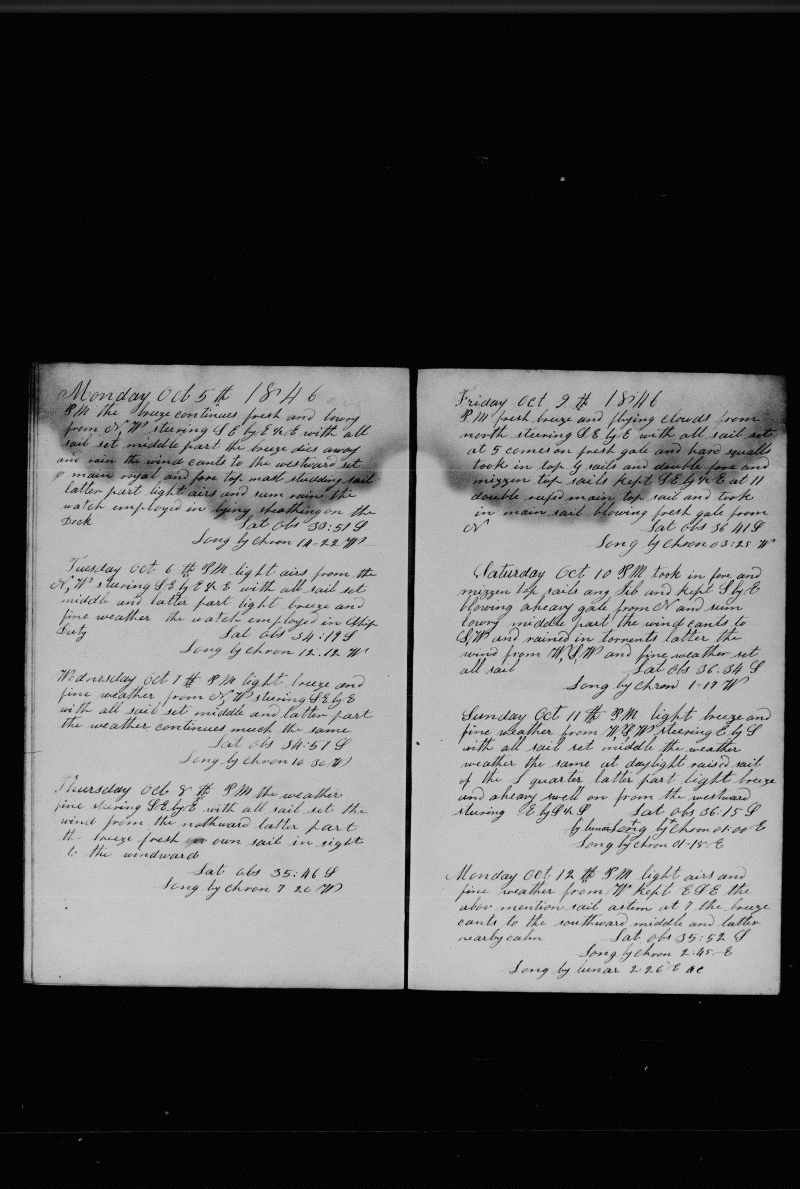 Monday Oct 5th 1846
P M the breeze continues fresh and lowry
from N, W steering S E by E ½ E with all
sail set middle part the breeze dies away
and rain the wind cants to the westward set
main royal and fore top mast studding sail
latter part light airs and sum rain the
watch employed in lying sheathing on the
Deck Lat obs 33:51 S
Long by chron 14-22 W
Tuesday Oct 6th P M light airs from the
N, W steering S E by E ½ E with all sail set
middle and latter part light breeze and
fine weather the watch employed in Ship
Duty Lat obs 34:19 S
Long by chron 12:12 W
Wednesday Oct 7th P M light breeze and
fine weather from N, W steering S E by E
with all sail set middle and latter part
the weather continues much the same
Lat obs 34:51 S
Long by chron 10 30 W
Thursday Oct 8th P M the weather
fine steering S E by E with all sail set the
wind from the nothward latter part
the breeze fresh own sail in sight
to the windward
Lat obs 35:46 S
Long by chron 7 20 W
Friday Oct 9th 1846
P M fresh breeze and flying clowds from
north steering S E by E with all sail set
at 5 comes on fresh gale and hard squalls
took in top g sails and double fore and
mizzen top sails kept S E by ½ E at 11
double reefd main top sail and took
in main sail blowing fresh gale from
N Lat obs 36 41 S
Long by chron 03:25 W
Saturday Oct 10 P M took in fore and
mizzen top sails ang Jib and kept S by E
blowing aheavy gale from N and sum
lowry middle part the wind cants to
S, W and rained in torrents latter the
wind from W, S, W and fine weather set
all sail Lat obs 36:34 S
Long by chron 1-17 W
Sunday Oct 11th P M light breeze and
fine weather from W, S, W steering E by S
with all sail set middle the weather
weather the same at daylight raised sail
of the S quarter latter part light breeze
and aheavy swell on from the westward
steering E by S ½ S Lat obs 36:15 S
by lunar Long by chron 01:00 E
Long by chron 01-15 E
Monday Oct 12th P M light airs and
fine weather from W kept E S E the
abov mention sail astern at 7 the breeze
cants to the southward middle and latter
nearby calm Lat obs 35:52 S
Long by chron 2:45 E
Long by lunar 2:26 E